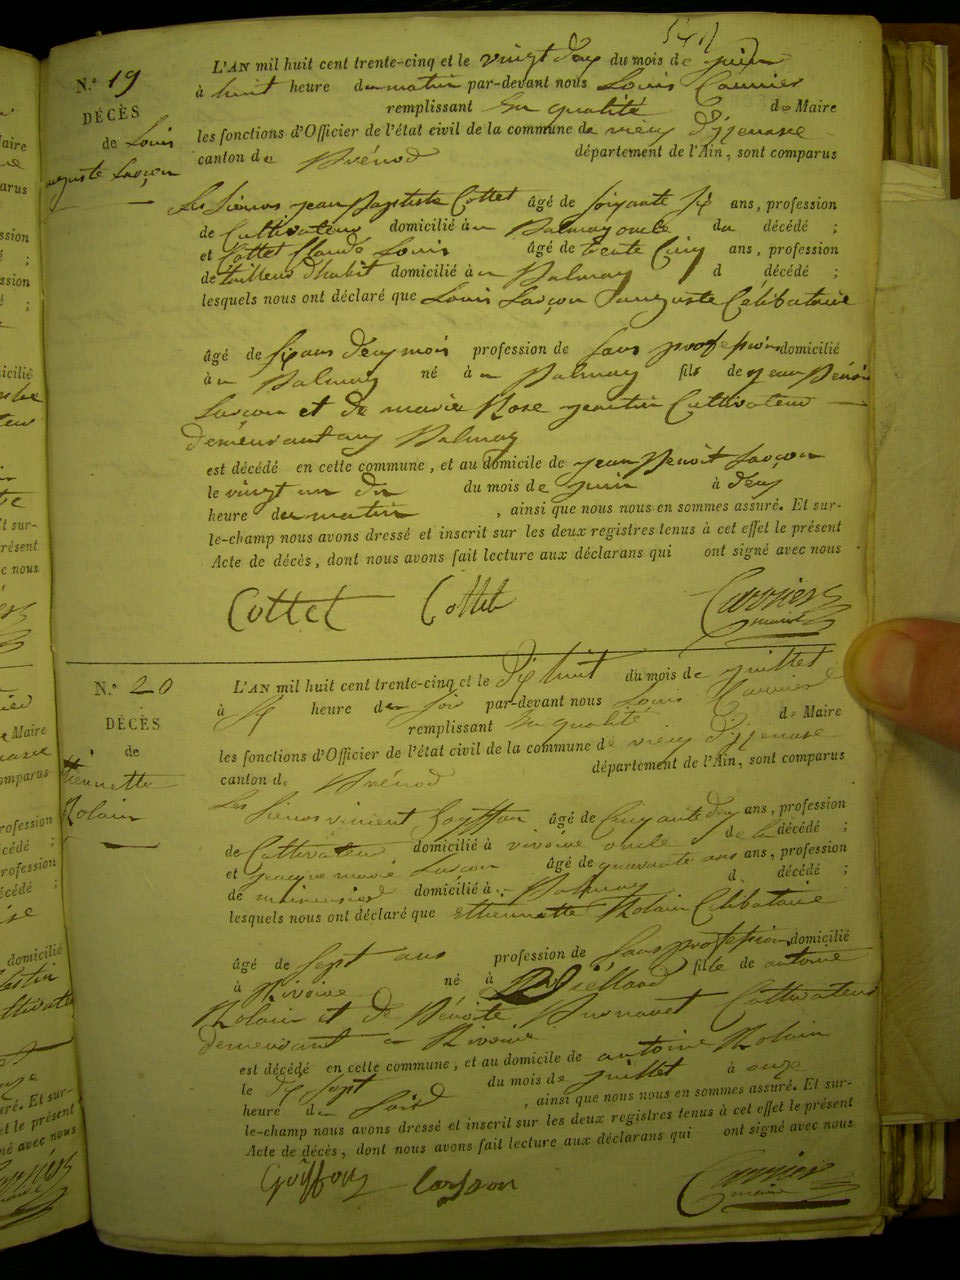 N.º 19
DÉCÈS
de Louis
auguste Lançon
L'AN mil huit cent trente-cinq et le vingt deux du mois de juin
à huit heure du matin par-devant nous Louis Carrier
remplissant En qualité de Maire
les fonctions d'Officier de l'état civil de la commune de vieux d'izenave
canton de Brénod département de l'Ain, sont comparus
Les Sieurs jean Baptiste Cottet âgé de soixante six ans, profession
de Cultivateur domicilié à Balmay oncle du décédé ;
et Cottet Claude Louis âgé de trente cinq ans, profession
de tailleur d'habit domicilié à Balmay d décédé ;
lesquels nous ont déclaré que Louis auguste Célibataire
âgé de six ans deux mois profession de sans profession domicilié
à Balmay né à Balmay fils de jean Benoit
Lançon et de marie Rose Cultivateur
demeurant au Balmay
est décédé en cette commune, et au domicile de jean Benoit Lançon
le vingt un du du mois de juin à deux
heure du matin , ainsi que nous nous en sommes assuré. Et sur-
le-champ nous avons dressé et inscrit sur les deux registres tenus à cet effet le présent
Acte de décès, dont nous avons fait lecture aux déclarans qui ont signé avec nous
Cottet Cottet Carrier
maire
N.º 20
DÉCÈS
de
Etiennette
Rolain
L'AN mil huit cent trente-cinq et le Dix huit du mois de juillet
à six heure du soir par-devant nous Louis Carrier
remplissant En qualité de Maire
les fonctions d'Officier de l'état civil de la commune de vieux d'izenave
canton de Brénod département de l'Ain, sont comparus
Les Sieurs vincent Goyffon âgé de Cinquante deux ans, profession
de Cultivateur domicilié à rivoire oncle de la décédé ;
et jacque marie Lançon âgé de quarante ans ans, profession
de domicilié à Balmay d décédé ;
lesquels nous ont déclaré que Ethiennette Rolain Célibataire
âgé de sept ans profession de Sans profession domicilié
à Rivoire né à fille de antoine
Rolain et de Bénoite Cultivateur
demeurant à Rivoire
est décédé en cette commune, et au domicile de antoine Rolain
le dix sept du mois de juillet à onze
heure du soir , ainsi que nous nous en sommes assuré. Et sur-
le-champ nous avons dressé et inscrit sur les deux registres tenus à cet effet le présent
Acte de décès, dont nous avons fait lecture aux déclarans qui ont signé avec nous
Goÿffon Carrier
maire